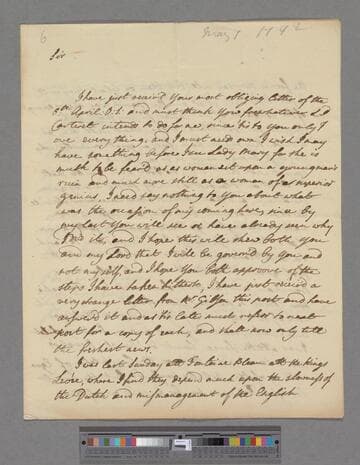 6
May 1 1742
Sir
I have just receiv'd your most obliging letter of the
April O.S. and must thank you for whatever Ld
Carteret intends to do for me, since tis to you only I
owe every thing, and I must needs own I wish I may
have something before I see Lady Mary for she is
much to be fear'd as a woman set upon a young man's
ruin and much more still as a woman of a superior
Genius, I need say nothing to you about what
was the occasion of my coming here, since by
my last you will see or have already seen why
I did it, and I hope this will shew both you
and my Lord that I will be govern'd by you and
not myself, and I hope you both approove of the
steps I have taken hitherto, I have just receiv'd a
very strange letter from Mr G. this post and have
answer'd it and as tis late must refer to next
post for a copy of each, and shall now only tell
the freshest news.
I was last Sunday att Fontaine Bleau att the Kings
Levée, where I find they depend much upon the slowness of
the Dutch and mismanagement of the English